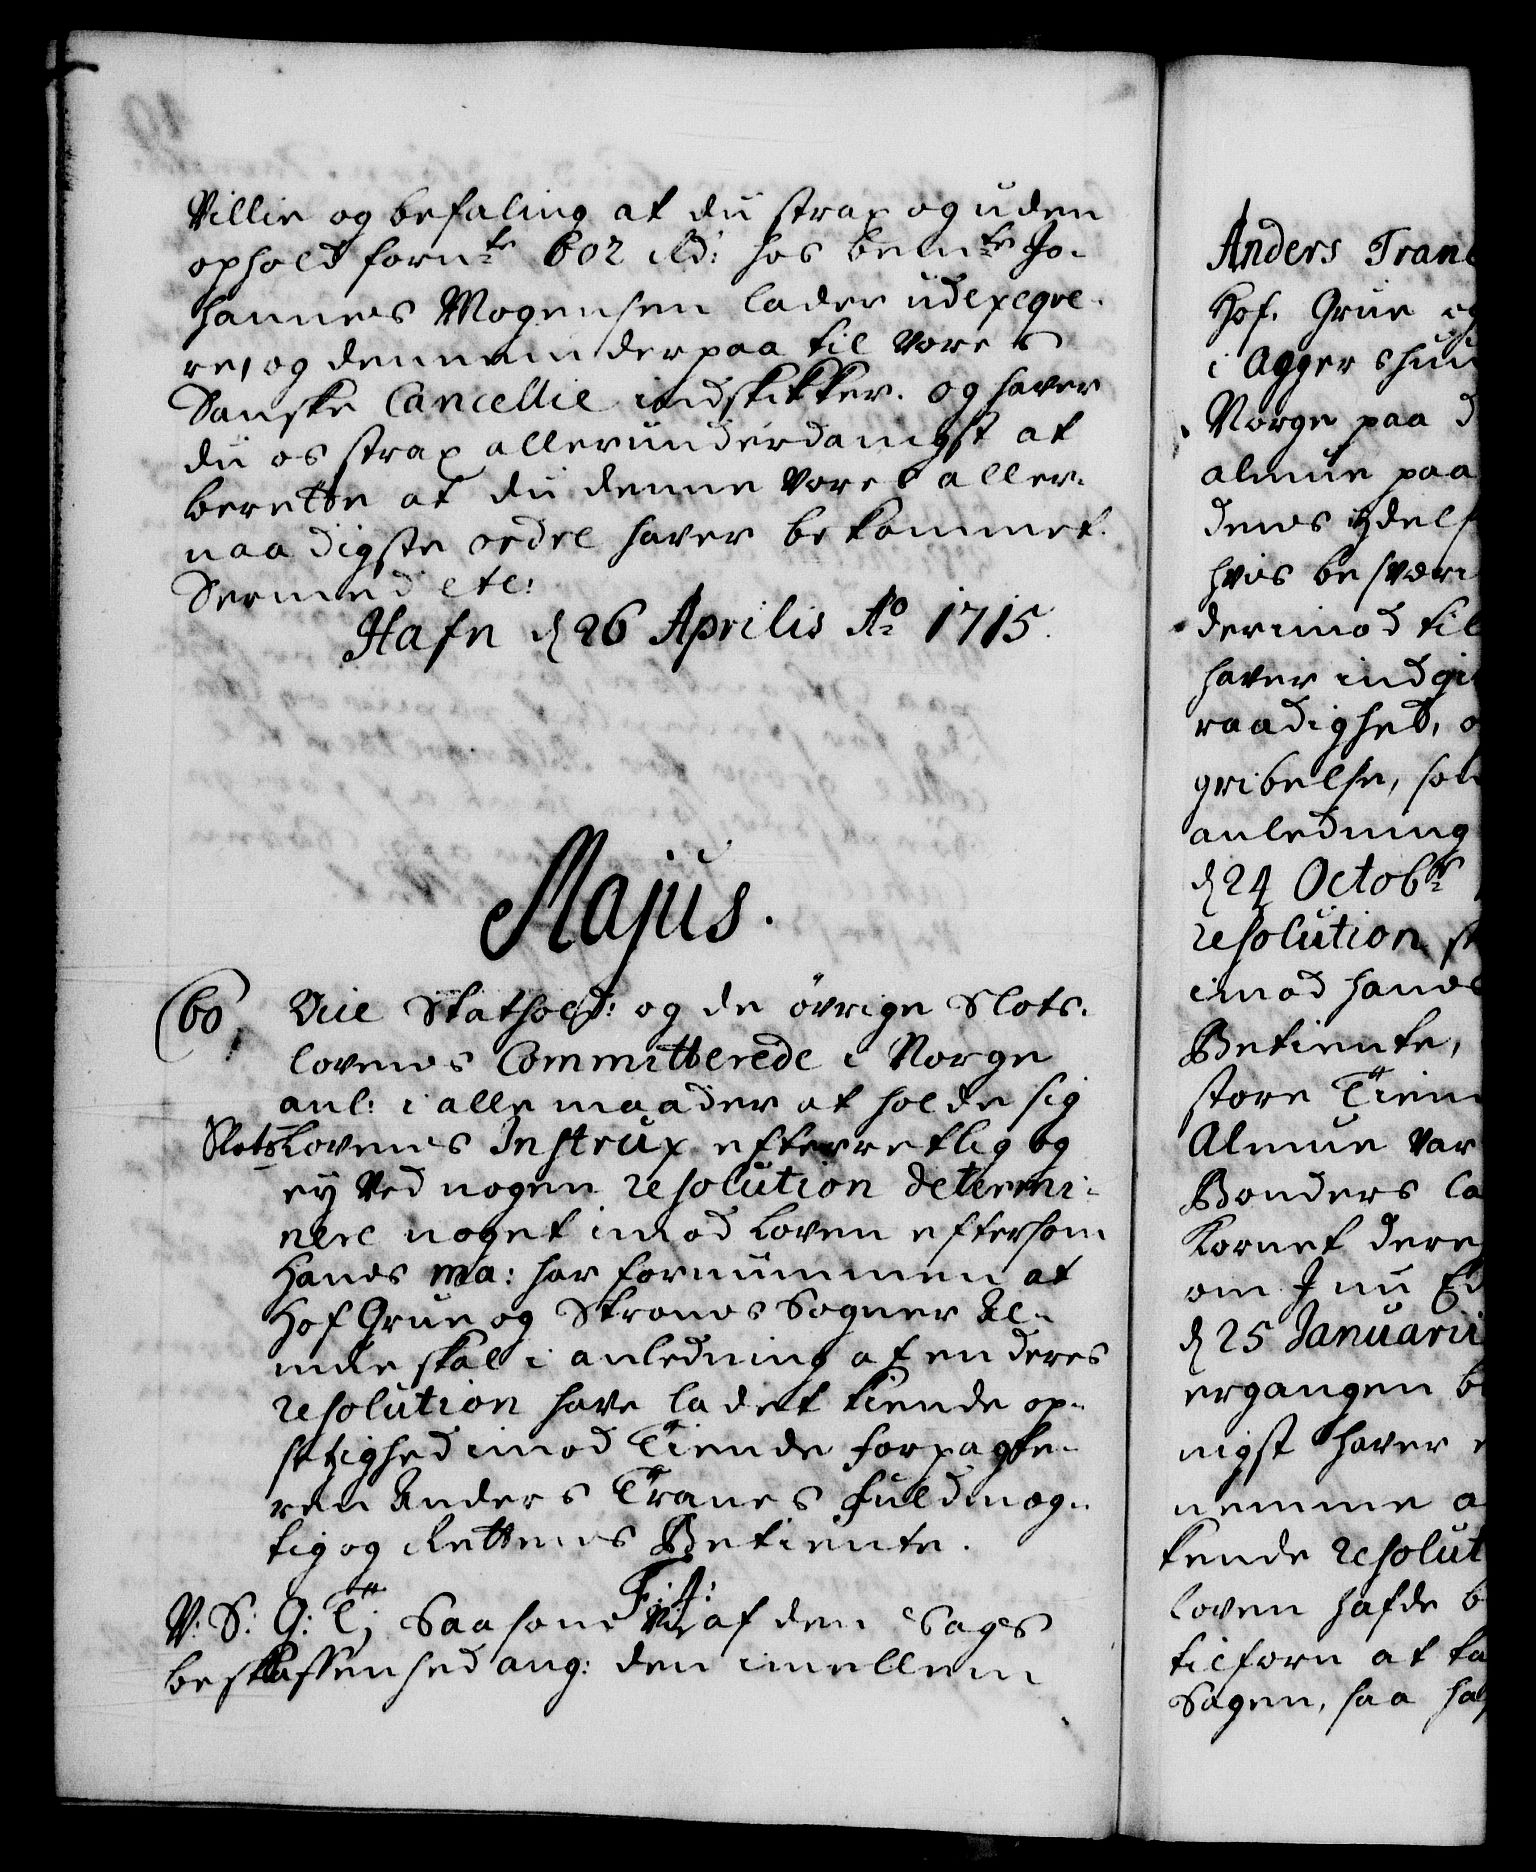 Villie og befaling at du strax og uden
ophold fornte 602 Rd: hos bemte Jo-
hannes Mogensen lader udexeqve-
re, og dennem derpaa til Vores
Danske Cancellie indskikker. og haver
du os strax allerunderdanigst at
berette at du denne Vores aller-
naadigste ordre haver bekommet.
Dermed etc:
Hafn d 26 Aprilis Ao 1715.
Majus.
60, Vice Stathold: og de övrige Slots-
lovens Committerede i Norge
anl: i alle maader at holde sig
SlotsLovens Instrux efterretlig og
ey Ved nogen resolution determi-
nere noget imod Loven eftersom
Hans Ma: har fornummen at
Hof Grue og Sogner Al-
mue skal i anledning af en deres
resolution have ladet kiende op-
setzighed imod Tiende forpagte-
ren Anders Tranes fuldmæg-
tig og Rettens Betiente.
F: 4:
V: S: G: T; Saasom Vi af den Sags
beskaffenhed ang: den imellem
Anders Trane
Hof, Grue og
i Aggershuu
Norge paa d
almue paa
dens
hvis besværi
derimod til
haver indgi
raadighed, o
gribelse, som
anledning
d 24 Octobr
resolution
imod hans
Betiente,
store Tien
Almue var
Bonders La
Kornet dere
om I nu
d 25 Januarii
ergangen b
nigst haver
nemme a
kende resolut
loven hafde b
tilforn at ta
Sagen, saa ha